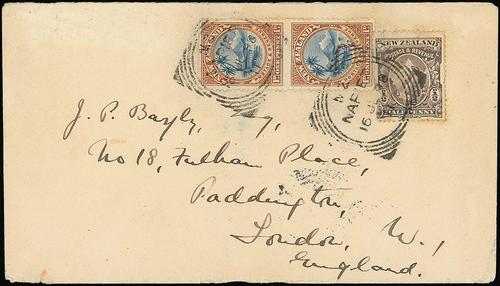 NEW ZEALAND
NEW ZEALAND
NEW ZEALAND
POSTAGE & REVENUE
HALF PENNY
NAPIER
16
J. P. Bayly, Esq,
No 18, Fulham Place,
Paddington,
London, W.,
England.